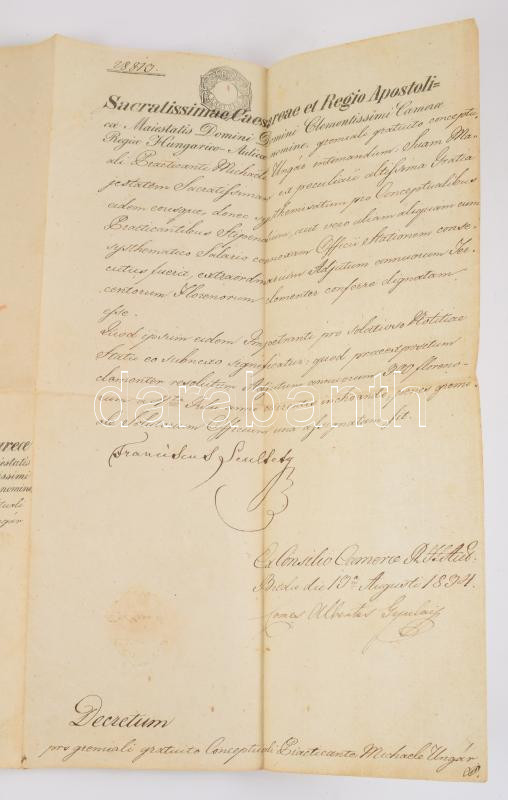 28810.
Sacratissimae Caesareae et Regio Apostoli=
cæ Maiestatis Domini Domini Clementissimi Cameræ
Regiæ Hungarico-Aulicæ nomine, gremiali gratuito conceptu,
ali Practicanti Michaeli Ungár intimandum: Suam Ma-
jestatem Sacratissimam ex peculiari altissima Gratia
eidem eousque, donec systhemisatum pro Conceptualibus
Practicantibus Stipendium, aut vero aliam aliquam cum
systhematico Salario connexam Officii Stationem conse-
cutus fuerit, extraordinarium Adjutum annuorum Tre-
centorum Florenorum clementer conferre dignatam
esse.
Quod ipsum eidem Impetranti pro Solatioso Notitiæ
Statu eo subnexo significatur: quod præexpositum
clementer resolutum Adjutum annuorum 300 floreno-
rum a inchoando, penes gremi-
ale Solutorum Officium una assignatum sit.
Franciscus
Ex Consilio Cameræ R. H. Aul.
Budæ die 19a Augusti 1834.
Comes Albertus Gyulaÿ
Decretum
pro gremiali gratuito Conceptuali Practicante Michaele Ungár
darabanth